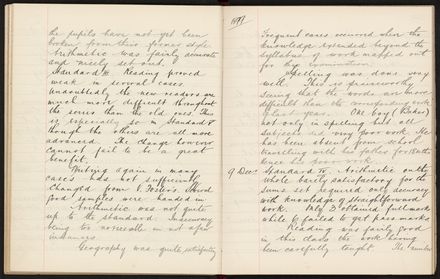 the pupils have not yet been
broken from their former style
Arithmetic was fairly accurate
and nicely set out.
Standard III. Reading proved
weak in several cases
Undoubtedly the new readers are
much more difficult throughout
the series than the old ones. This
is especially so in Standard III
though the others are all more
advanced. The change however
cannot fail to be a great
benefit.
Writing again in many
cases had not sufficiently
changed from V. Foster's. Some
good samples were handed in
Arithmetic was not quite
up to the standard. Inaccuracy
being too noticeable in
instances
Geography was quite satisfactory
1899
Frequent cases occurred where the
knowledge extended beyond the
syllabus of work mapped out
for the examination.
Spelling was done very
well. This is praiseworthy
seeing that the words are more
difficult than the corresponding work
last year. One boy (Baker)
not only in spelling but all
subjects did very poor work. He
has been absent from school
travelling with his father for
hence his poor work
9 Dec. Standard IV. Arithmetic on the
whole barely satisfactory for the
sums set required only accuracy
with knowledge of straightforward
work. Only 3 obtained full marks
while 6 failed to get pass marks
Reading was fairly good
in this class the work having
been carefully taught. The